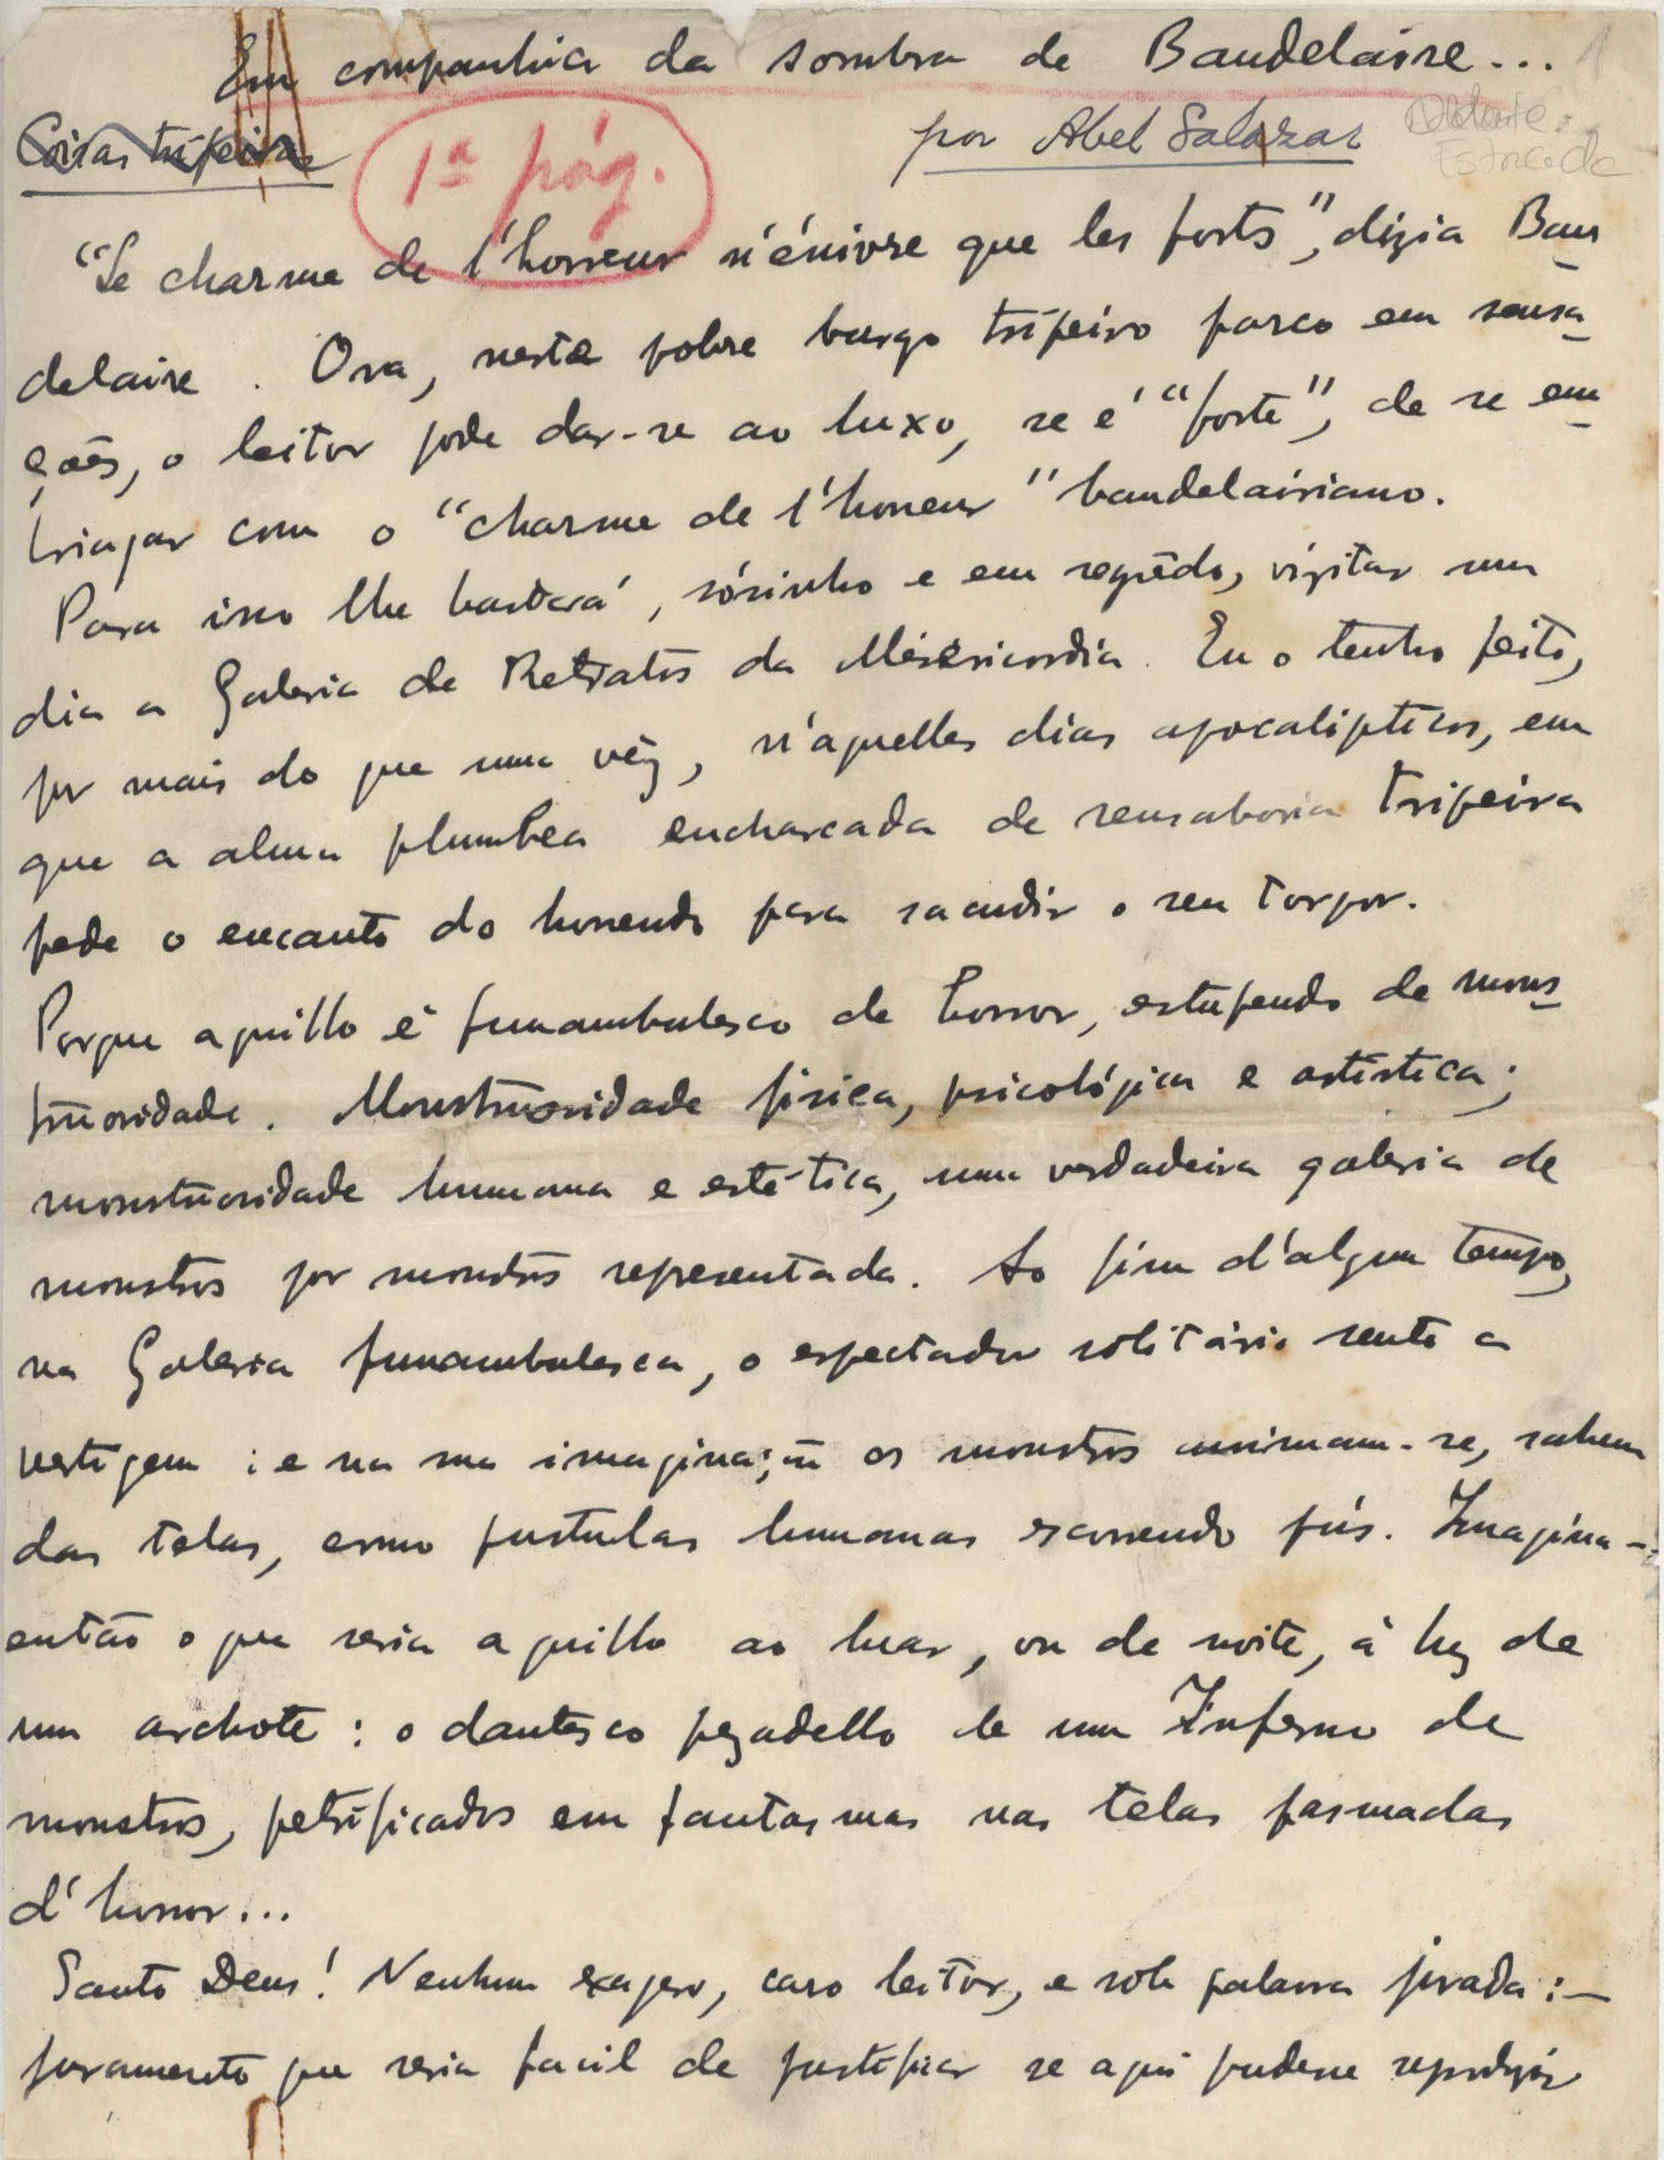 Em companhia da sombra de Baudelaire... 1
Coisas tripeiras
1ª pág.
por Abel Salazar
"Le charme de l'horreur n'énivre que les forts", dizia Bau
delaire. Ora, neste pobre burgo tripeiro parco em sensa-
ções, o leitor pode dar-se ao luxo, se é "forte", de se em-
briagar com o "charme de l'horreur" baudelairiano.
Para isso lhe bastará, sósinho e em segrêdo, vizitar um
dia a Galeria de Retratos da Misericordia. Eu o tenho feito,
por mais do que uma vêz, n'aquelles dias apocalipticos, em
que a alma plumbea encharcada de sensaboria tripeira
pede o encanto do horrendo para sacudir o seu torpor.
Porque aquillo é funambulesco de horror, estupendo de mons-
truosidade. Monstruosidade fisica, psicológica e artistica;
monstruosidade humana e estética, uma verdadeira galeria de
monstros por monstros representada. Ao fim d'algum tempo,
na Galeria funambulesca, o espectador solitário sente a
vertigem: e na sua imaginação os monstros animam-se, sahem
das telas, como pustulas humanas escorrendo pús. Imagina-
então o que seria aquillo ao luar, ou de noite, á luz de
um archote: o dantesco pezadello de um Inferno de
monstros, petrificados em fantasmas nas telas pasmadas
d'horror...
Santo Deus! Nenhum exagero, caro leitor, e sob palavra jurada:—
juramento que seria facil de justificar se aqui pudesse reproduzir